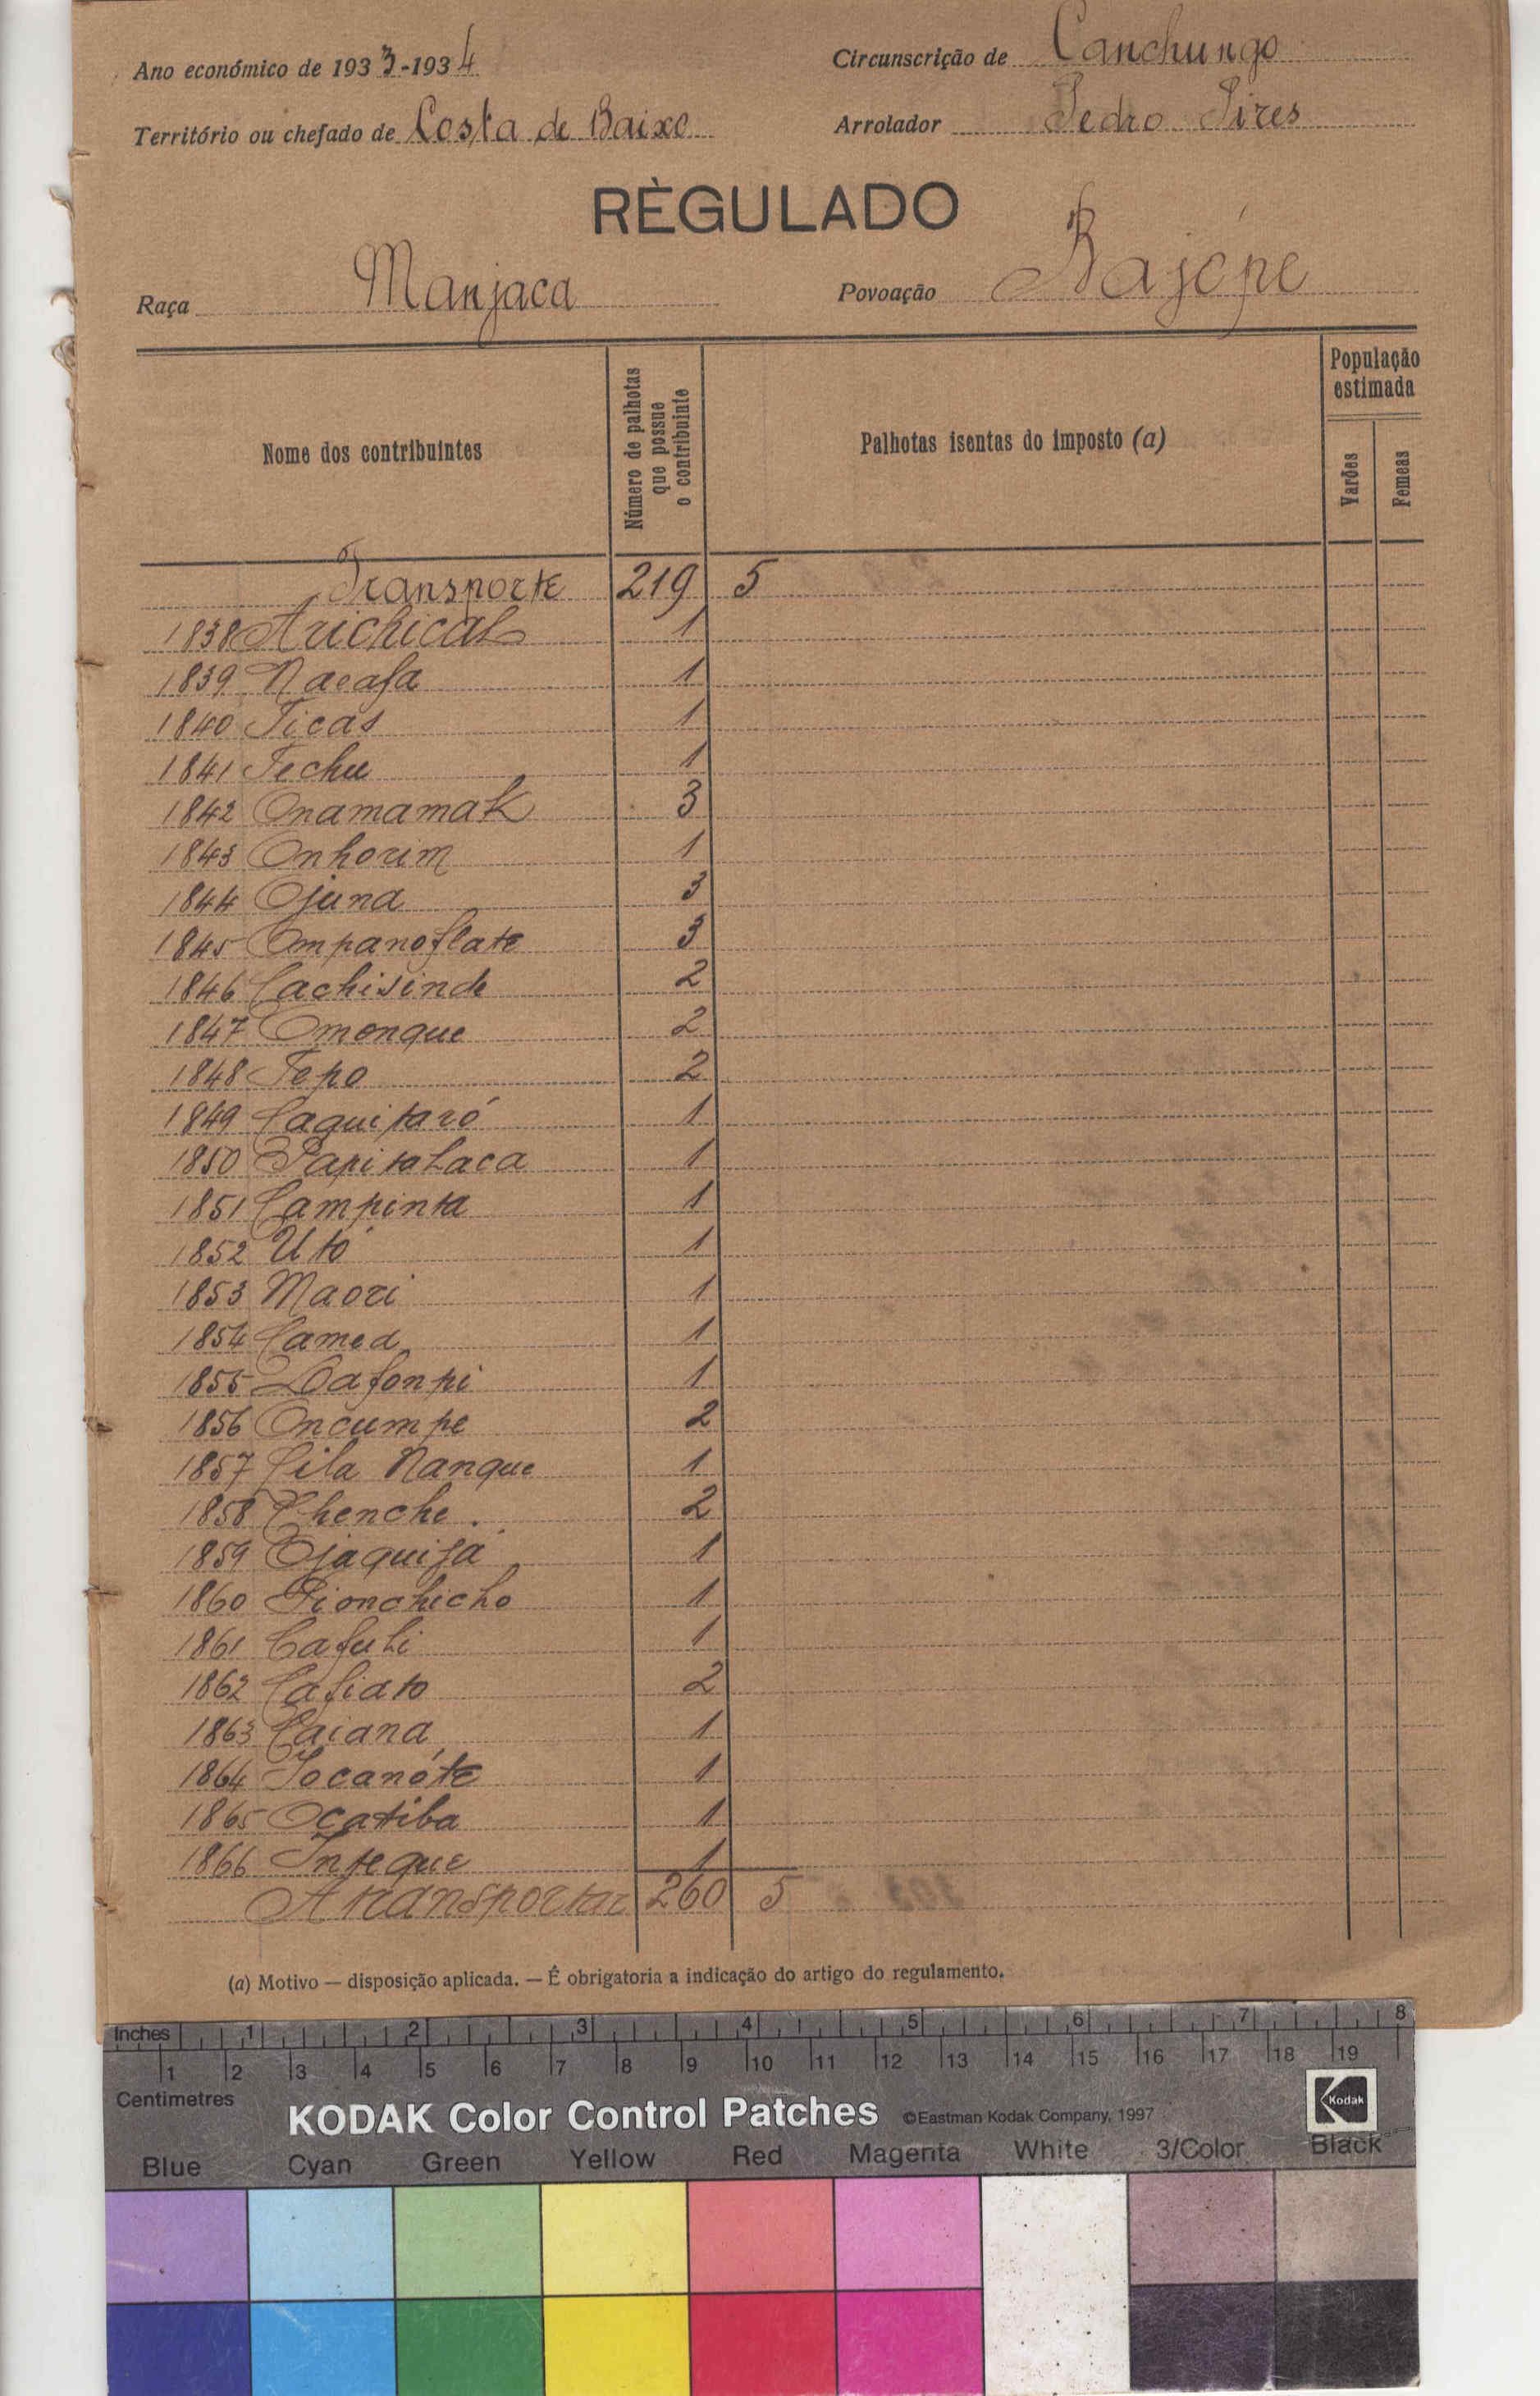 Ano económico de 1933-1934
Circunscrição de Canchungo
Território ou chefado de Costa de Baixo
Arrolador Pedro Pires
RÈGULADO
Raça Manjaca
Povoação Bajópe
Nome dos contribuintes
Número de palhotas que possue o contribuinte
Palhotas isentas do imposto (a)
População estimada
Varões
Femeas
Transporte 219 5
1838 Arichical 1
1839 Nacafa 1
1840 Ticas 1
1841 Techu 1
1842 Onamamak 3
1843 Onhorim 1
1844 Ojuna 3
1845 Ompanoflate 3
1846 Cachisinde 2
1847 Omonque 2
1848 Tepo 2
1849 Caquitaró 1
1850 Papitalaca 1
1851 Campinta 1
1852 Utó 1
1853 Maori 1
1854 Camed 1
1855 Dafonpi 1
1856 Oncumpe 2
1857 Cila Nanque 1
1858 Chenche . 2
1859 Ojaquifá 1
1860 Pionchicho 1
1861 Cafuli 1
1862 Cafiato 2
1863 Caiana 1
1864 Jocanóte 1
1865 Ocatiba 1
1866 Inteque 1
A transportar 260 5
(a) Motivo — disposição aplicada. — É obrigatoria a indicação do artigo do regulamento.
Inches 1 2 3 4 5 6 7 8
1 2 3 4 5 6 7 8 9 10 11 12 13 14 15 16 17 18 19
Centimetres
KODAK Color Control Patches ©Eastman Kodak Company, 1997 Kodak
Blue Cyan Green Yellow Red Magenta White 3/Color Black